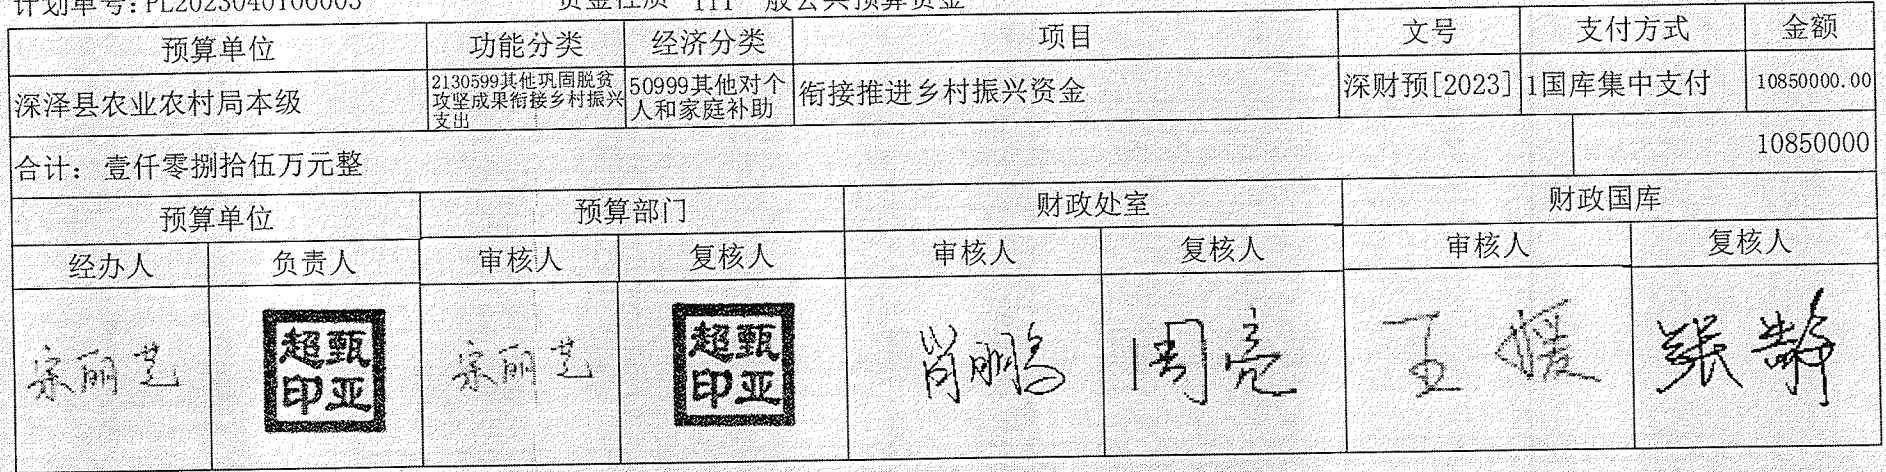 计划单号:PL2023040100003 资金性质 111 一般公共预算资金
预算单位 功能分类 经济分类 项目 文号 支付方式 金额
深泽县农业农村局本级 2130599其他巩固脱贫 50999其他对个 衔接推进乡村振兴资金 深财预[2023] 1国库集中支付 10850000.00
攻坚成果衔接乡村振兴 人和家庭补助
支出
合计：壹仟零捌拾伍万元整 10850000
预算单位 预算部门 财政处室 财政国库
经办人 负责人 审核人 复核人 审核人 复核人 审核人 复核人
宋丽艺 甄亚超印 宋丽艺 甄亚超印 肖鹏 周亮 王媛 张静